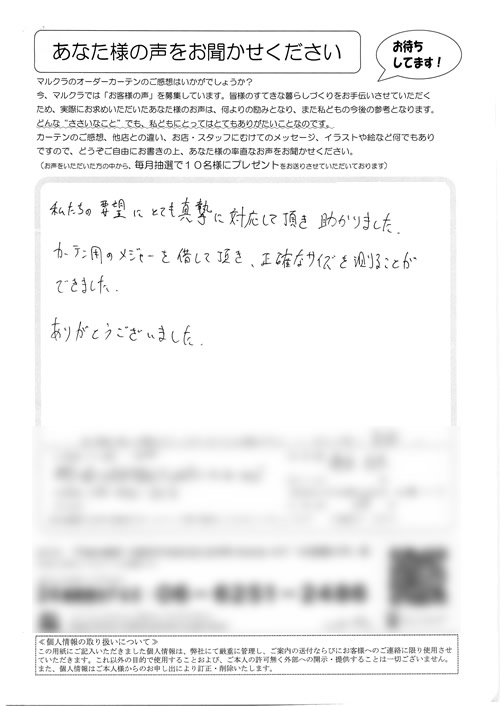 あなた様の声をお聞かせください
お待ち
してます！
マルクラのオーダーカーテンのご感想はいかがでしょうか？
今、マルクラでは「お客様の声」を募集しています。皆様のすてきな暮らしづくりをお手伝いさせていただく
ため、実際にお求めいただいたあなた様のお声は、何よりの励みとなり、また私どもの今後の参考となります。
どんな“ささいなこと”でも、私どもにとってはとてもありがたいことなのです。
カーテンのご感想、他店との違い、お店・スタッフにむけてのメッセージ、イラストや絵など何でもあり
ですので、どうぞご自由にお書きの上、あなた様の率直なお声をお聞かせください。
（お声をいただいた方の中から、毎月抽選で１０名様にプレゼントをお送りさせていただいております）
私たちの要望にとても真摯に対応して頂き助かりました.
カーテン用のメジャーを借して頂き、正確なサイズを測ることが
できました.
ありがとうございました.
06-6251-2486
≪個人情報の取り扱いについて≫
この用紙にご記入いただきました個人情報は、弊社にて厳重に管理し、ご案内の送付ならびにお客様へのご連絡に限り使用させ
ていただきます。これ以外の目的で使用することおよび、ご本人の許可無く外部への開示・提供することは一切ございません。
また、個人情報はご本人様からのお申し出により訂正・削除いたします。